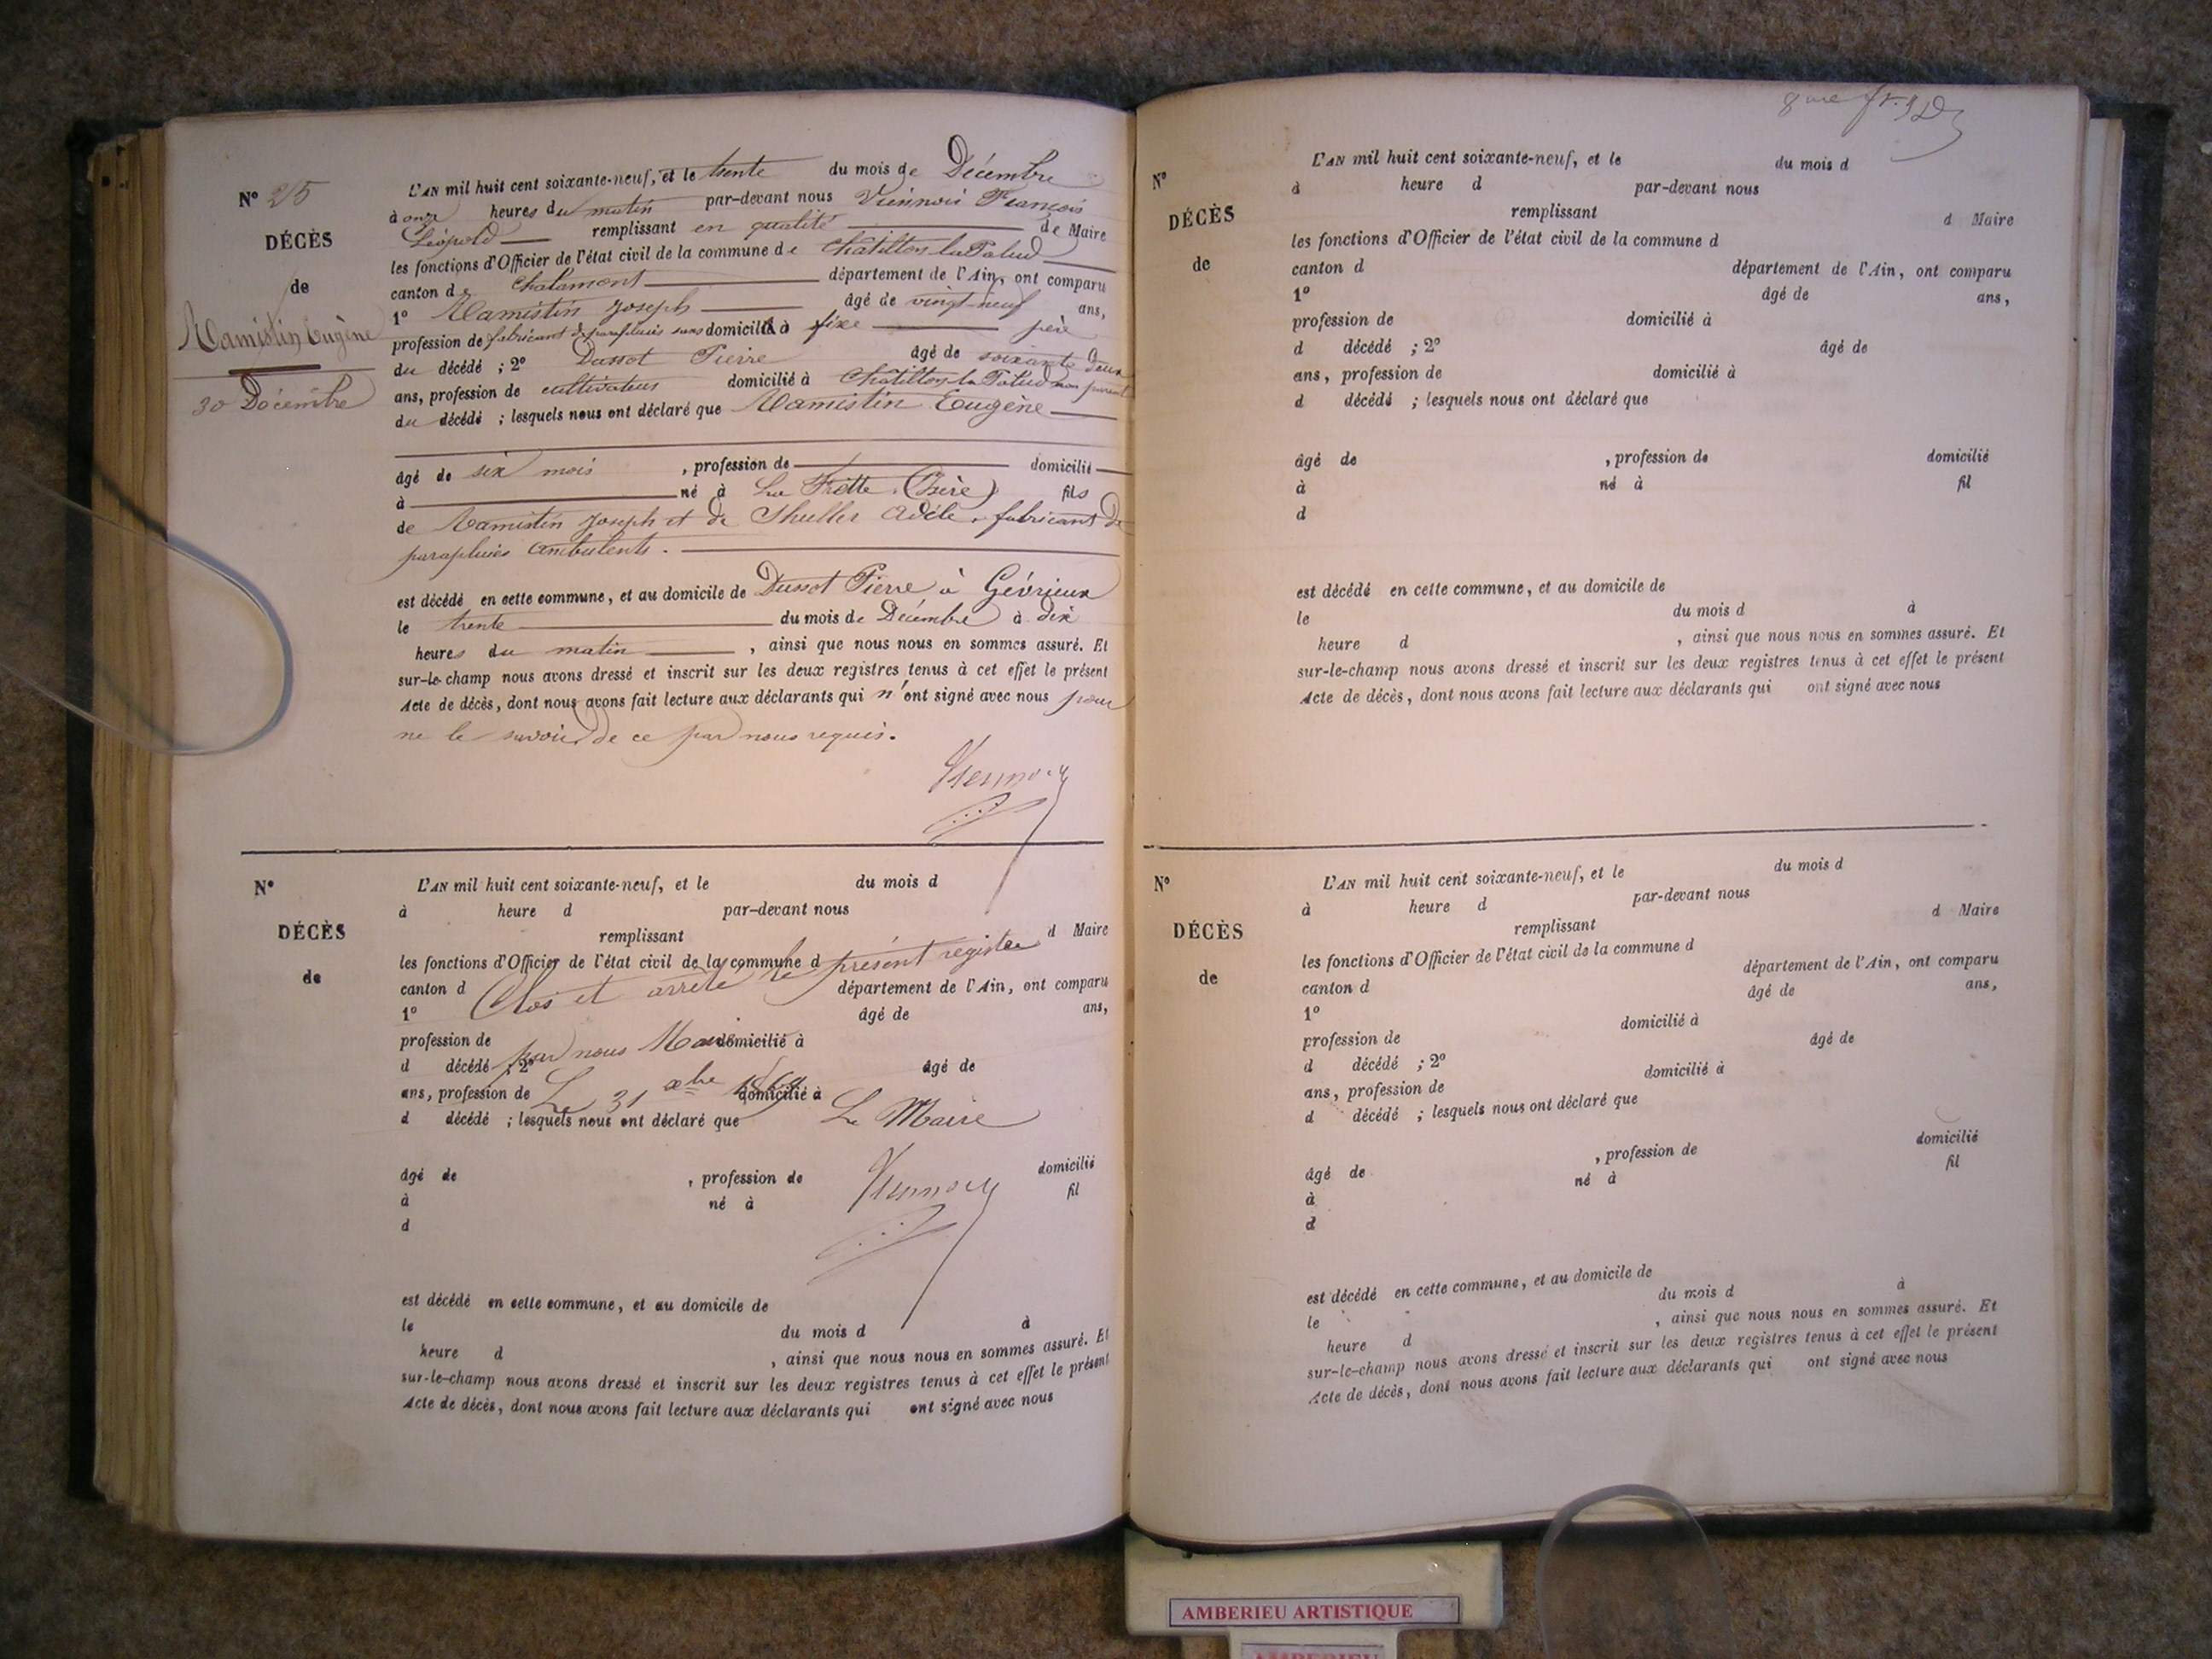 Nº 25
DÉCÈS
de
Mamistin Eugène
30 Décembre
L'AN mil huit cent soixante-neuf, et le trente du mois de Décembre
à onze heures du matin par-devant nous Viennois François
Léopold remplissant en qualité de Maire
les fonctions d'Officier de l'état civil de la commune de Châtillon la Palud
canton de Chalamont département de l'Ain, ont comparu
1º Mamistin Joseph âgé de vingt-neuf ans,
profession de fabricant de parapluies sans domicilié à fixe père
du décédé ; 2º Dussot Pierre âgé de soixante deux
ans, profession de cultivateur domicilié à Châtillon la Palud non parent
du décédé ; lesquels nous ont déclaré que Mamistin Eugène
âgé de six mois , profession de domicilié
à né à La Frette (Isère) fils
de Mamistin Joseph et de Shuller Adèle, fabricant de
parapluies ambulents.
est décédé en cette commune, et au domicile de Dussot Pierre à Gévrieux
le trente du mois de Décembre à dix
heures du matin , ainsi que nous nous en sommes assuré. Et
sur-le-champ nous avons dressé et inscrit sur les deux registres tenus à cet effet le présent
Acte de décès, dont nous avons fait lecture aux déclarants qui n'ont signé avec nous pour
ne le savoir de ce par nous requis.
Viennois
Nº
DÉCÈS
de
L'AN mil huit cent soixante-neuf, et le du mois d
à heure d par-devant nous
remplissant d Maire
les fonctions d'Officier de l'état civil de la commune d
canton d département de l'Ain, ont comparu
Clos et arrêté le présent registre
1º âgé de ans,
profession de domicilié à
par nous Maire
d décédé ; 2º âgé de
ans, profession de domicilié à
Le 31 xbre 1869
d décédé ; lesquels nous ont déclaré que
Le Maire
âgé de , profession de domicilié
Viennois
à né à fil
d
est décédé en cette commune, et au domicile de
le du mois d à
heure d , ainsi que nous nous en sommes assuré. Et
sur-le-champ nous avons dressé et inscrit sur les deux registres tenus à cet effet le présent
Acte de décès, dont nous avons fait lecture aux déclarants qui ont signé avec nous
Nº
DÉCÈS
de
L'AN mil huit cent soixante-neuf, et le du mois d
à heure d par-devant nous
remplissant d Maire
les fonctions d'Officier de l'état civil de la commune d
canton d département de l'Ain, ont comparu
1º âgé de ans,
profession de domicilié à
d décédé ; 2º âgé de
ans, profession de domicilié à
d décédé ; lesquels nous ont déclaré que
âgé de , profession de domicilié
à né à fil
d
est décédé en cette commune, et au domicile de
le du mois d à
heure d , ainsi que nous nous en sommes assuré. Et
sur-le-champ nous avons dressé et inscrit sur les deux registres tenus à cet effet le présent
Acte de décès, dont nous avons fait lecture aux déclarants qui ont signé avec nous
Nº
DÉCÈS
de
L'AN mil huit cent soixante-neuf, et le du mois d
à heure d par-devant nous
remplissant d Maire
les fonctions d'Officier de l'état civil de la commune d
canton d département de l'Ain, ont comparu
1º âgé de ans,
profession de domicilié à
d décédé ; 2º âgé de
ans, profession de domicilié à
d décédé ; lesquels nous ont déclaré que
âgé de , profession de domicilié
à né à fil
d
est décédé en cette commune, et au domicile de
le du mois d à
heure d , ainsi que nous nous en sommes assuré. Et
sur-le-champ nous avons dressé et inscrit sur les deux registres tenus à cet effet le présent
Acte de décès, dont nous avons fait lecture aux déclarants qui ont signé avec nous
AMBERIEU ARTISTIQUE
AMBERIEU